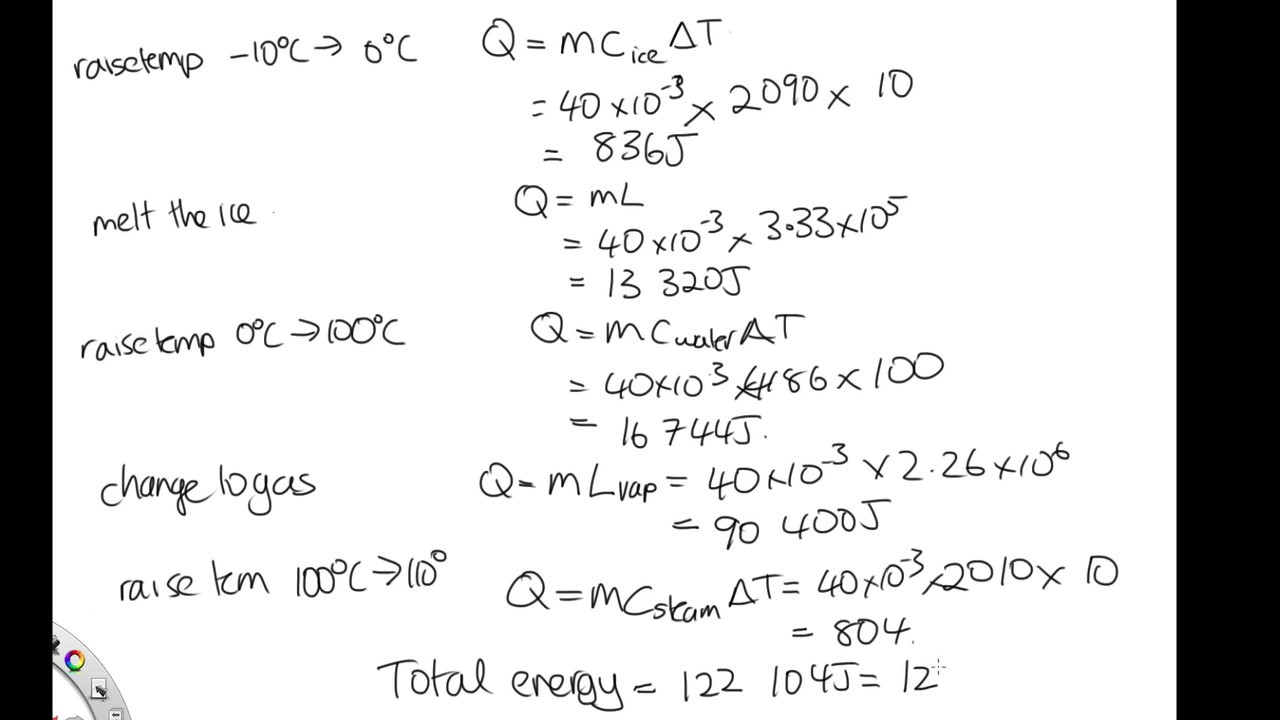 raise temp -10°C → 0°C Q = mC ice ΔT
= 40 × 10⁻³ × 2090 × 10
= 836J
melt the ice Q = mL
= 40 × 10⁻³ × 3.33 × 10⁵
= 13 320J
raise temp 0°C → 100°C Q = mC water ΔT
= 40 × 10⁻³ × 4186 × 100
= 16 744J.
change to gas Q = mL vap = 40 × 10⁻³ × 2.26 × 10⁶
= 90 400J
raise tem 100°C → 110° Q = mC steam ΔT = 40 × 10⁻³ × 2010 × 10
= 804.
Total energy = 122 104J = 12